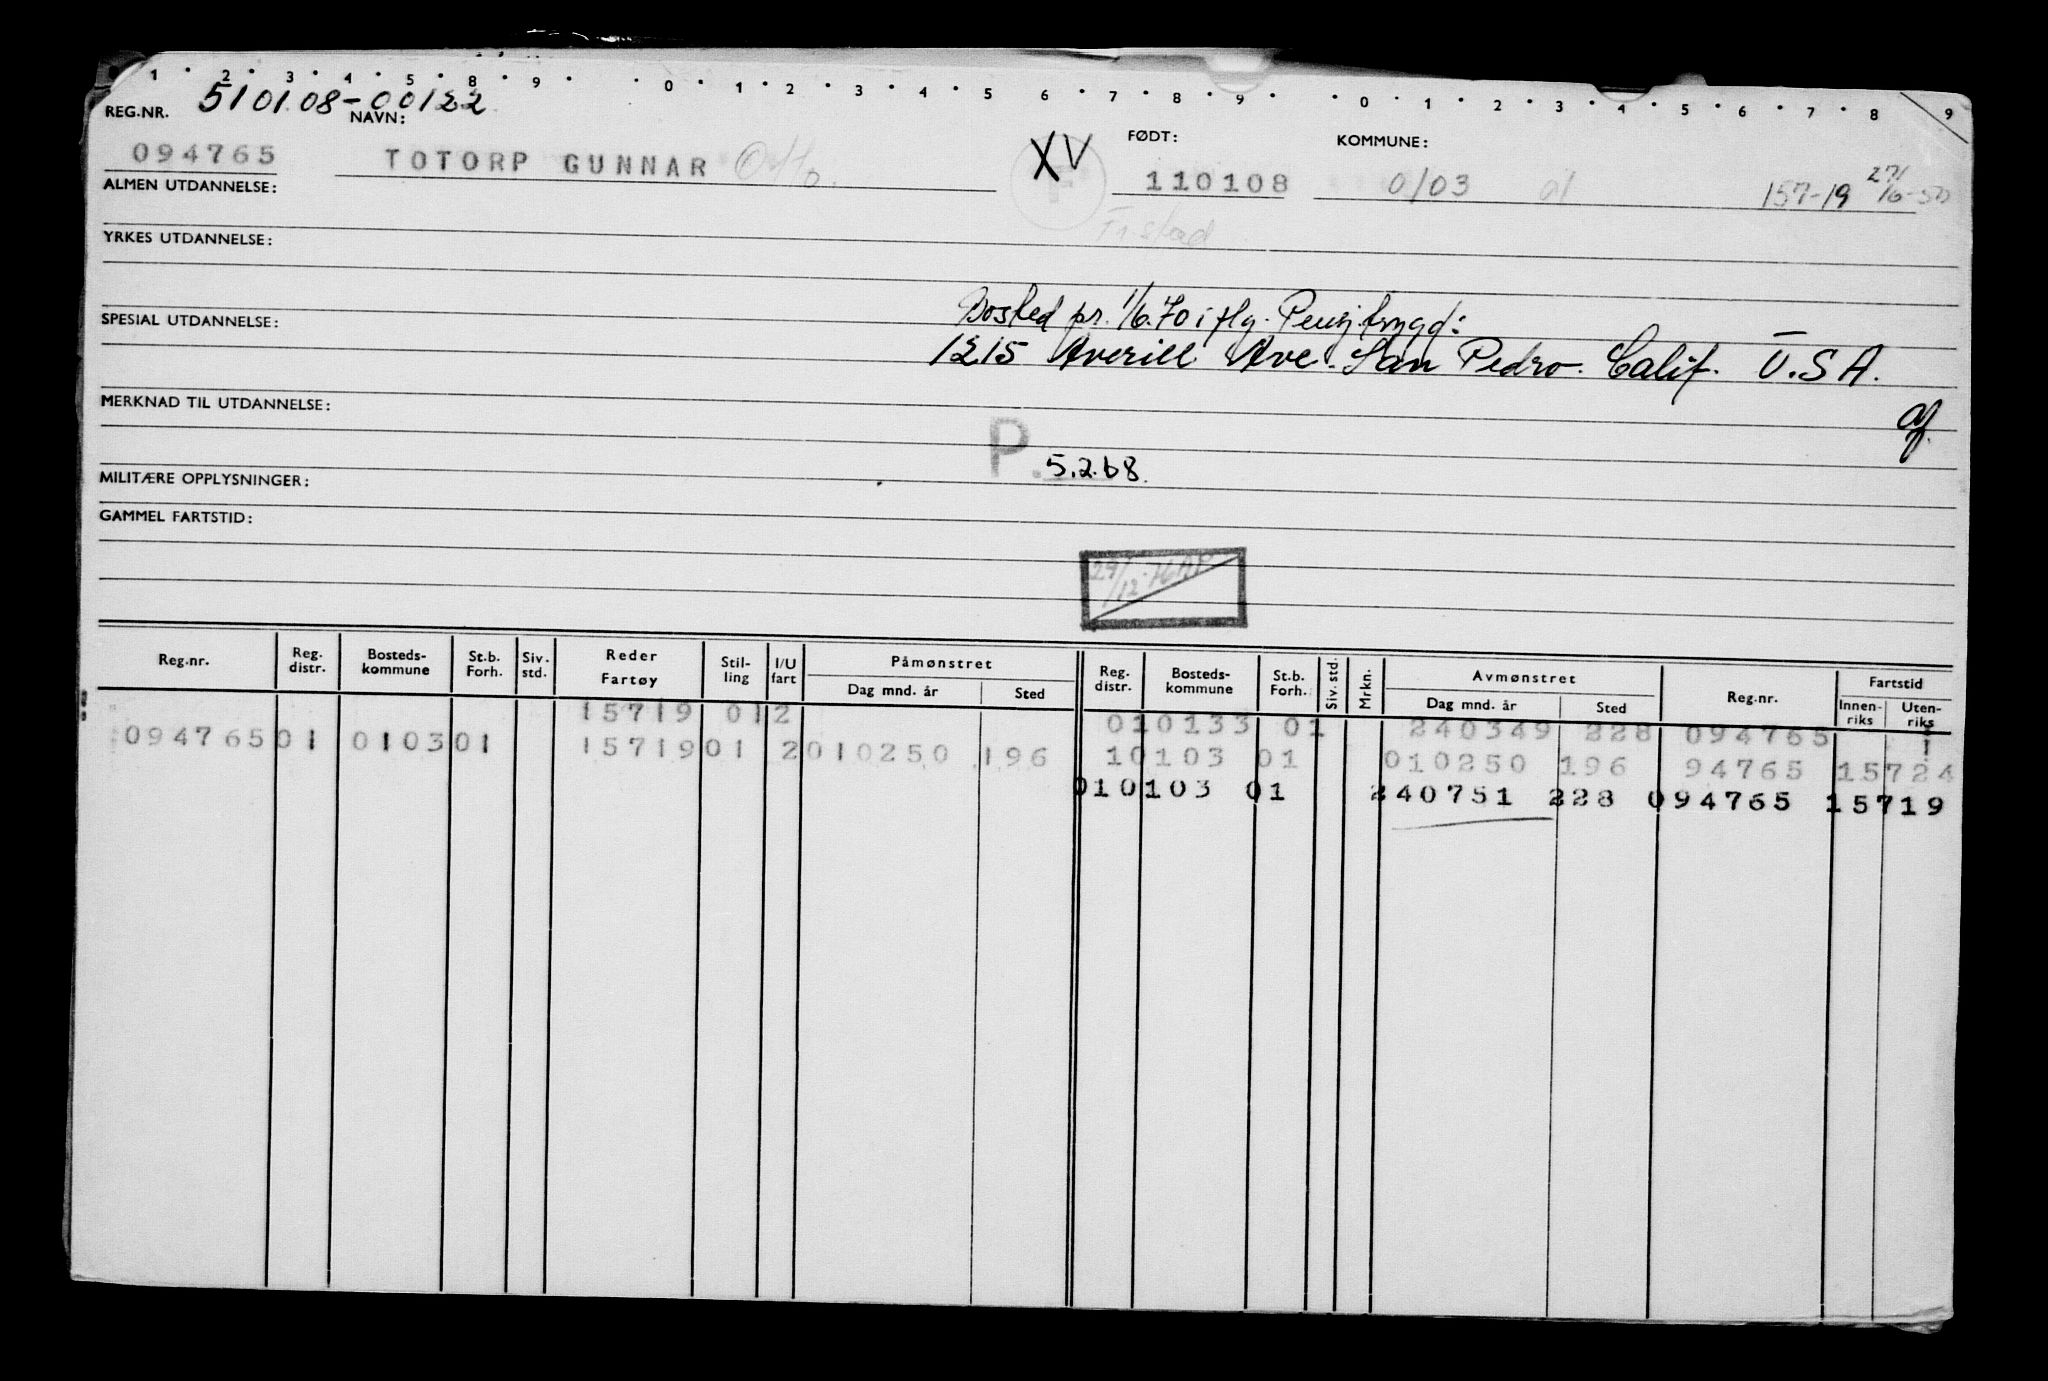 1 2 3 4 5 8 9 0 1 2 3 4 5 6 7 8 9 0 1 2 3 4 5 6 7 8 9
REG.NR. 510108-00122 NAVN: FØDT: KOMMUNE:
094765 TOTORP GUNNAR Otto XV 110108 0103 01 157-19
ALMEN UTDANNELSE:
YRKES UTDANNELSE:
Bosted pr. 1/6.70 i flg. Pensj.trygd:
SPESIAL UTDANNELSE:
1215 Averill Ave. San Pedro. Calif. U.S A.
MERKNAD TIL UTDANNELSE:
P. 5.2.68.
MILITÆRE OPPLYSNINGER:
GAMMEL FARTSTID:
29/12
Reg.nr. Reg. distr. Bosteds-kommune St.b. Forh. Siv. std. Reder Fartøy Stil-ling I/U fart Påmønstret Dag mnd. år Sted Reg. distr. Bosteds-kommune St.b. Forh. Siv. std. Mrkn. Avmønstret Dag mnd. år Sted Reg.nr. Fartstid Innen-riks Uten-riks
15719 012 010133 01 240349 228 094765
094765 01 0103 01 15719 01 2 010250 196 10103 01 010250 196 94765 15724
010103 01 240751 228 094765 15719